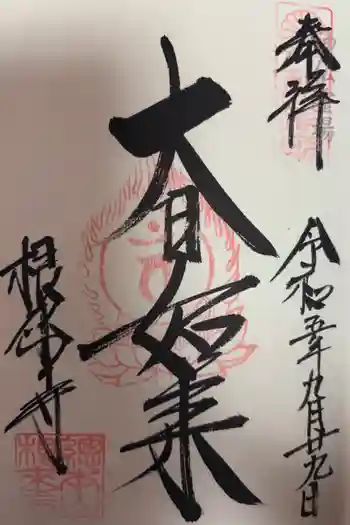 奉拝
令和五年九月廿九日
大日如来
根来寺